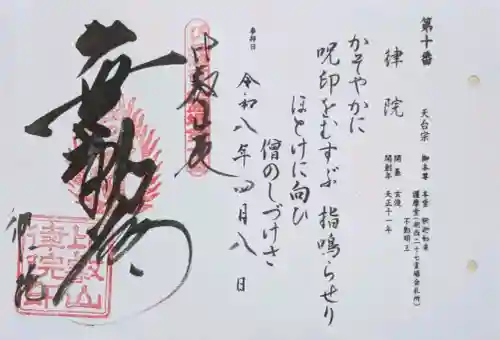 第十番
律院
天台宗
御本尊 本堂 釈迦如来
護摩堂(新西二十七霊場会札所)
不動明王
開基 玄俊
開創年 天正十一年
かそやかに
呪印をむすぶ 指鳴らせり
ほとけに向ひ
僧のしづけさ
参拝日
令和八年四月八日
比叡山坂
律院